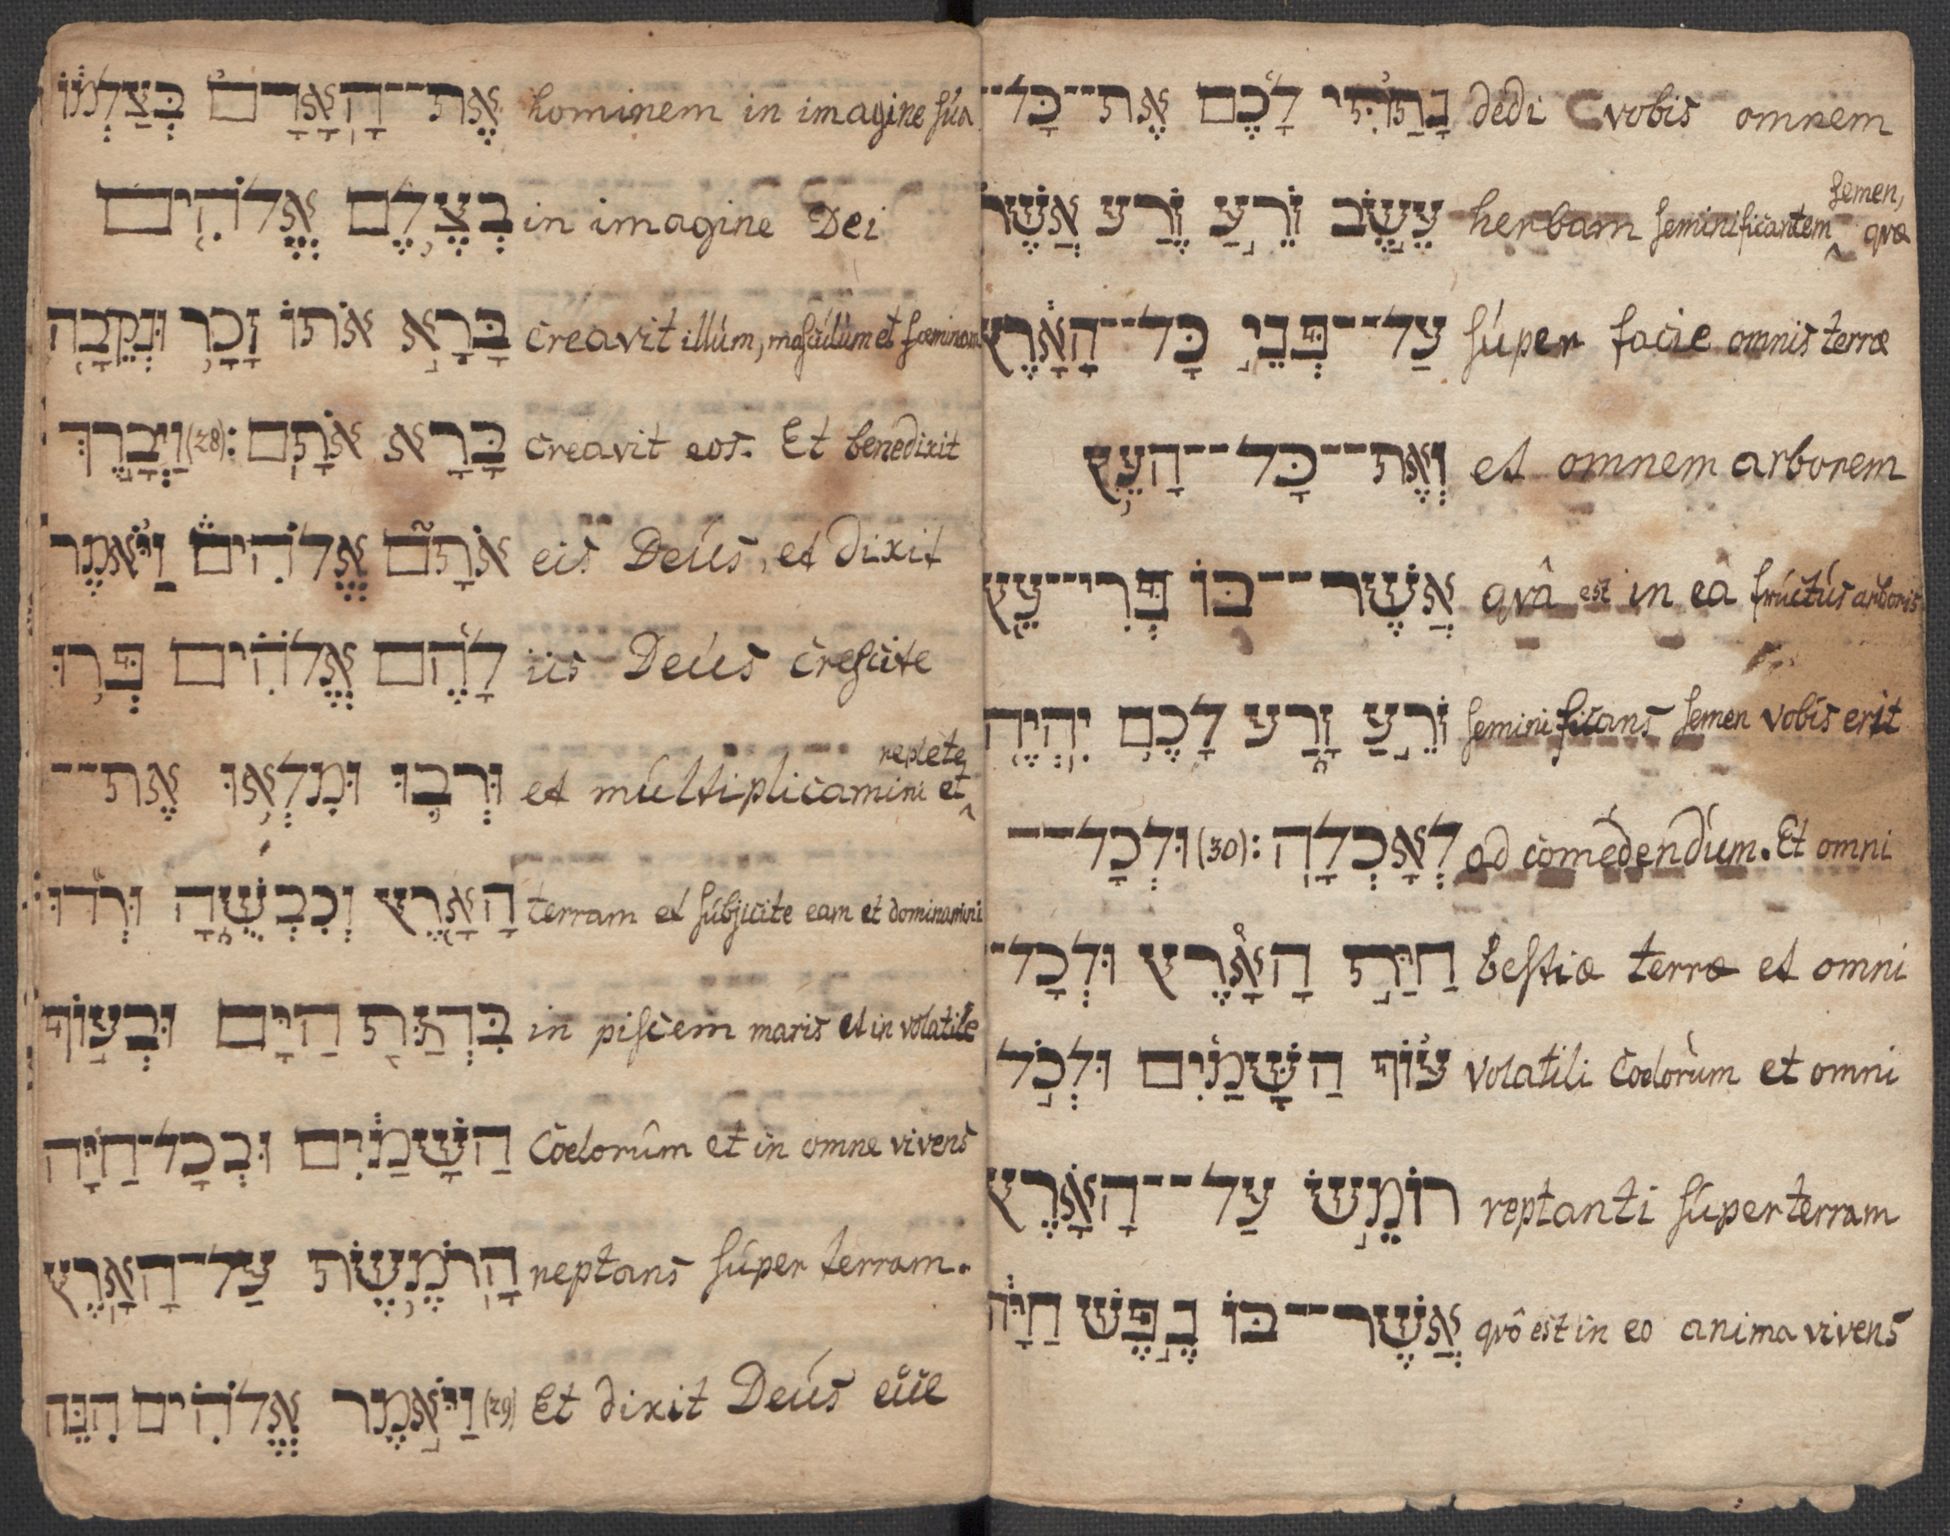 אֶת־־הָאָדָם בְּצַלְמוֹ hominem in imagine sua
בְּצֶלֶם אֱלֹהִים in imagine Dei
בָּרָא אֹתוֹ זָכָר וּנְקֵבָה creavit illum, masculum et fœminam
בָּרָא אֹתָם׃ (28) וַיְבָרֶךְ creavit eos. Et benedixit
אֹתָם אֱלֹהִים וַיֹּאמֶר eis Deus, et dixit
לָהֶם אֱלֹהִים פְּרוּ iis Deus crescite
וּרְבוּ וּמִלְאוּ אֶת־־ et multiplicamini et replete
הָאָרֶץ וְכִבְשֻׁהָ וּרְדוּ terram et subjicite eam et dominamini
בִּדְגַת הַיָּם וּבְעוֹף in piscem maris et in volatile
הַשָּׁמַיִם וּבְכָל־חַיָּה Coelorum et in omne vivens
הָרֹמֶשֶׂת עַל־הָאָרֶץ reptans super terram.
(29) וַיֹּאמֶר אֱלֹהִים הִנֵּה Et dixit Deus ecce
נָתַתִּי לָכֶם אֶת־־כָּל־־ dedi vobis omnem
עֵשֶׂב זֹרֵעַ זֶרַע אֲשֶׁר herbam seminificantem semen, quæ
עַל־־פְּנֵי כָּל־־הָאָרֶץ super facie omnis terræ
וְאֶת־־כָּל־־הָעֵץ et omnem arborem
אֲשֶׁר־־בּוֹ פְּרִי־־עֵץ quâ est in eâ fructus arboris
זֹרֵעַ זָרַע לָכֶם יִהְיֶה seminificans semen vobis erit
לְאָכְלָה׃ (30) וּלְכָל־־ ad comedendum. Et omni
חַיַּת הָאָרֶץ וּלְכָל־ bestiæ terræ et omni
עוֹף הַשָּׁמַיִם וּלְכֹל volatili Coelorum et omni
רוֹמֵשׂ עַל־־הָאָרֶץ reptanti super terram
אֲשֶׁר־־בּוֹ נֶפֶשׁ חַיָּה quô est in eo anima vivens